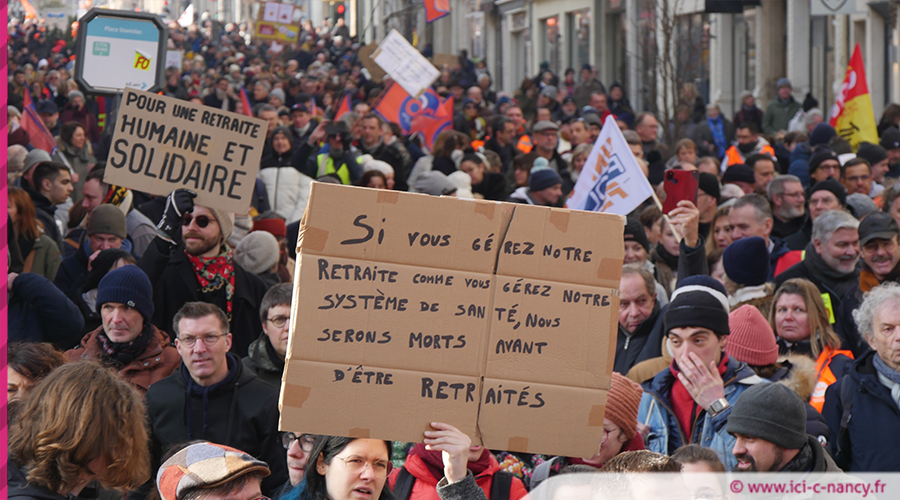 Place Stanislas
FO
POUR UNE RETRAITE
HUMAINE ET
SOLIDAIRE
SI VOUS GÉREZ NOTRE
RETRAITE COMME VOUS GÉREZ NOTRE
SYSTÈME DE SANTÉ, NOUS
SERONS MORTS AVANT
D'ÊTRE RETRAITÉS
© www.ici-c-nancy.fr